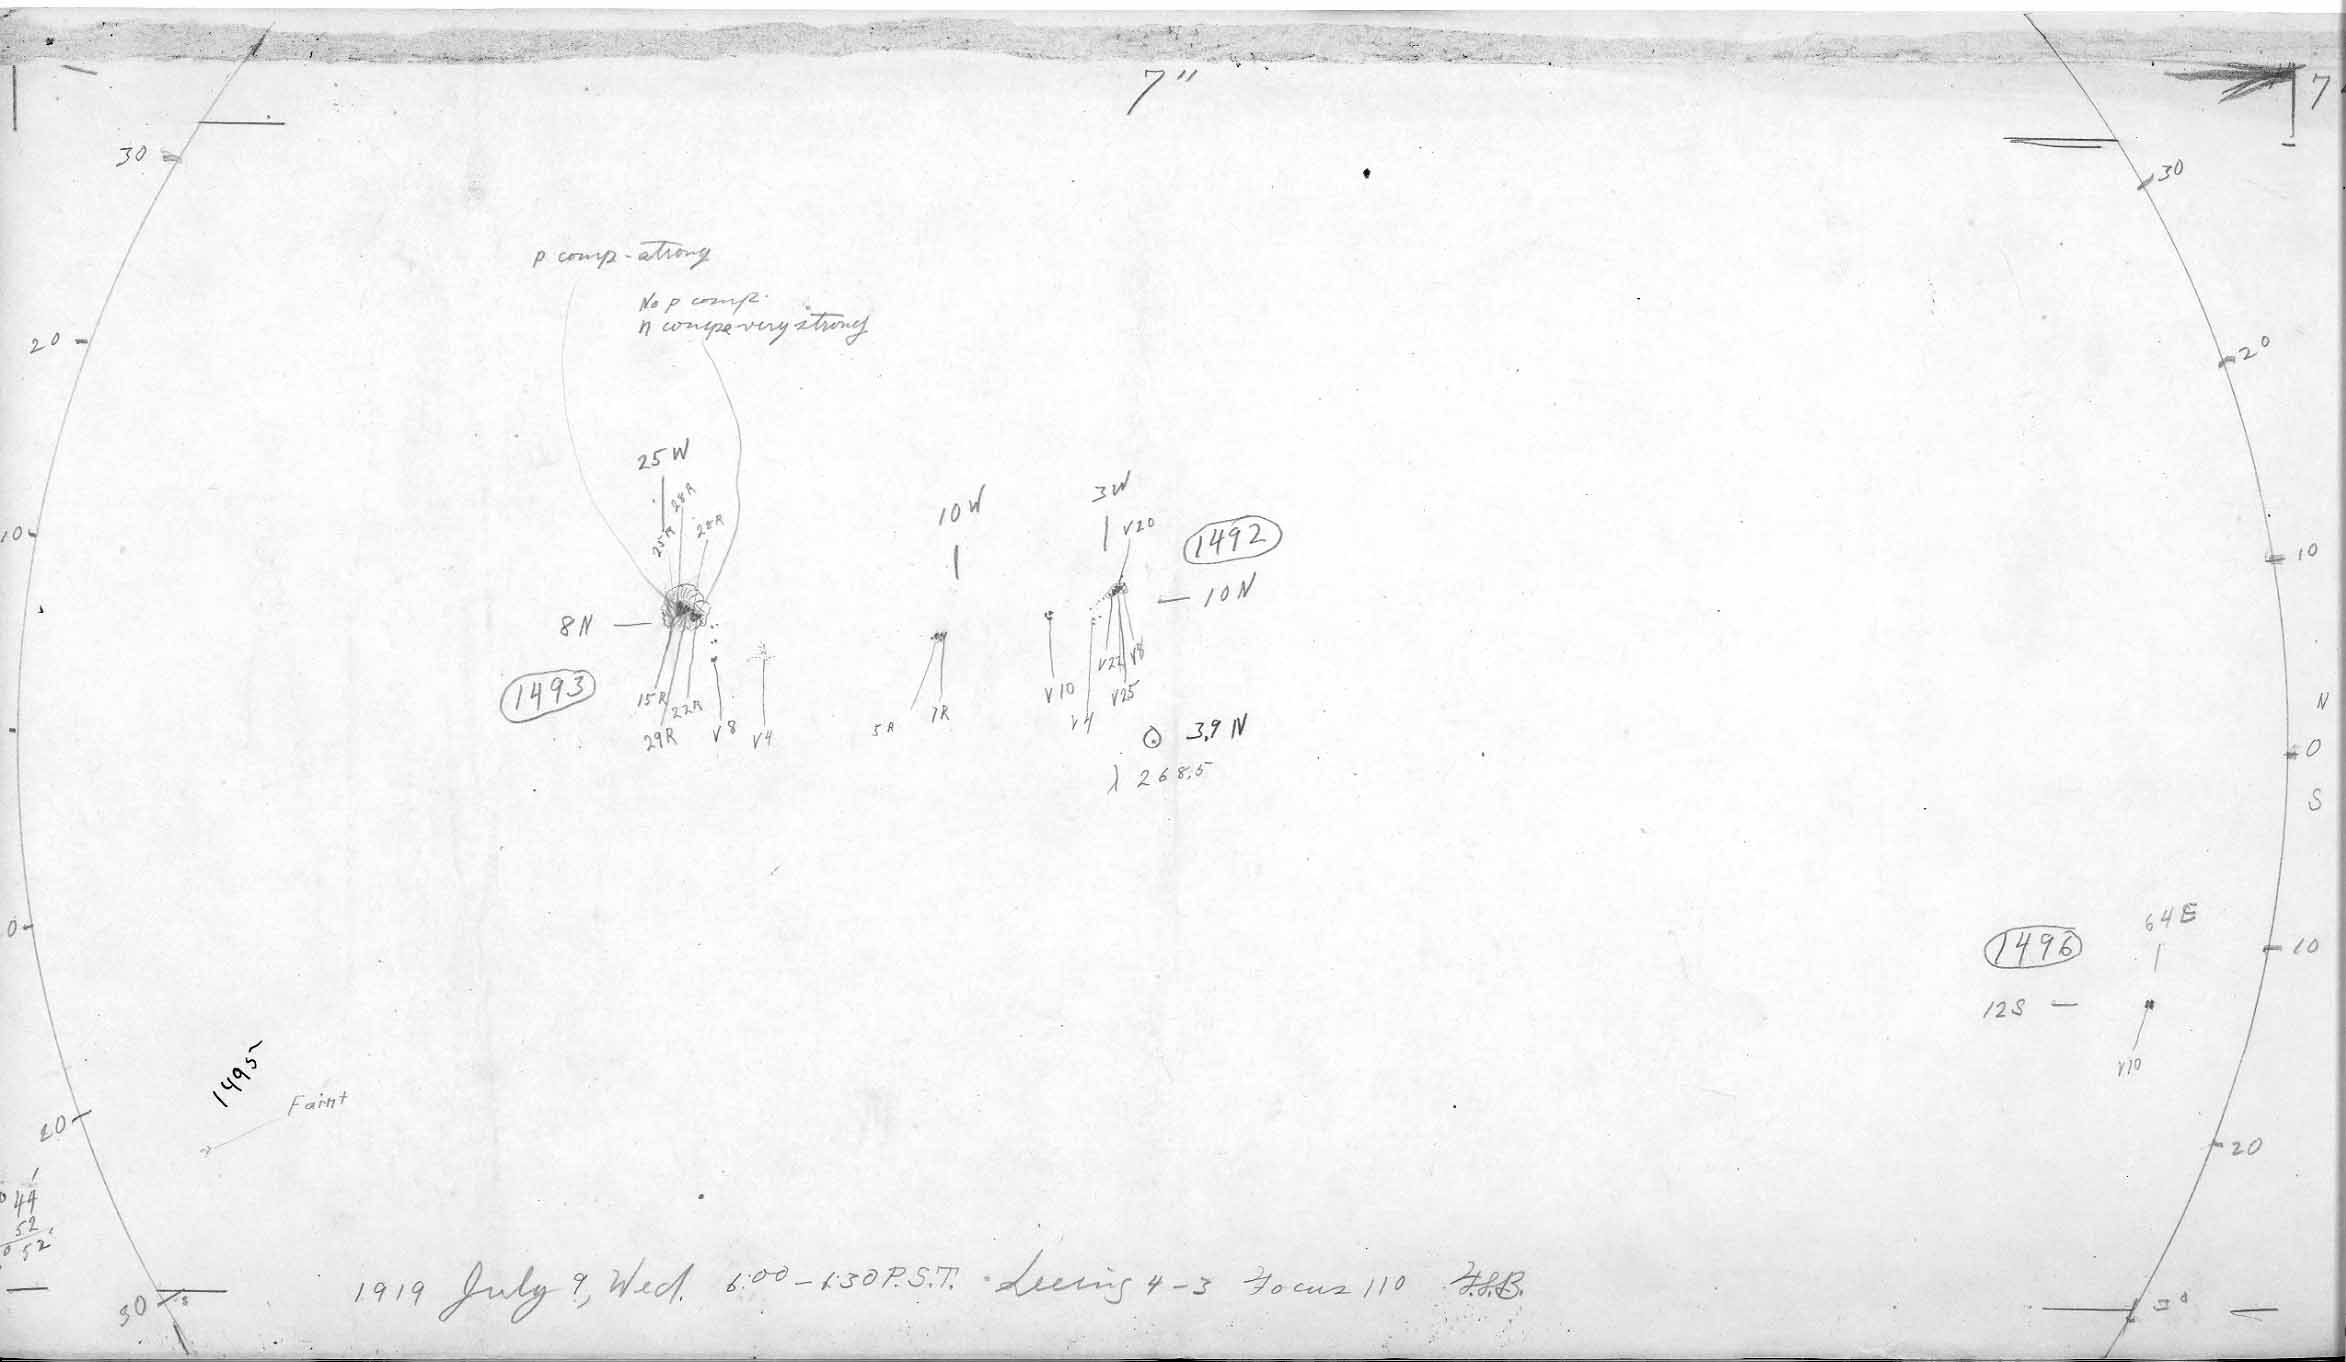 7"
7
30
30
p comp - strong
No p comp.
n comp very strong
20
20
25W
28R
25R
28R
10W
3W
V20
1492
10
10
8N
10N
1493
15R
22R
29R
V8
V4
5R
7R
V10
V4
V22
V8
V25
N
0
S
⊙ 3.9 N
λ 268.5
10
64E
1496
10
12S
V10
1495
Faint
20
20
44
52
52
30
30
1919 July 9, Wed. 6:00 - 6:30 P.S.T. Seeing 4-3 Focus 110 F.S.B.